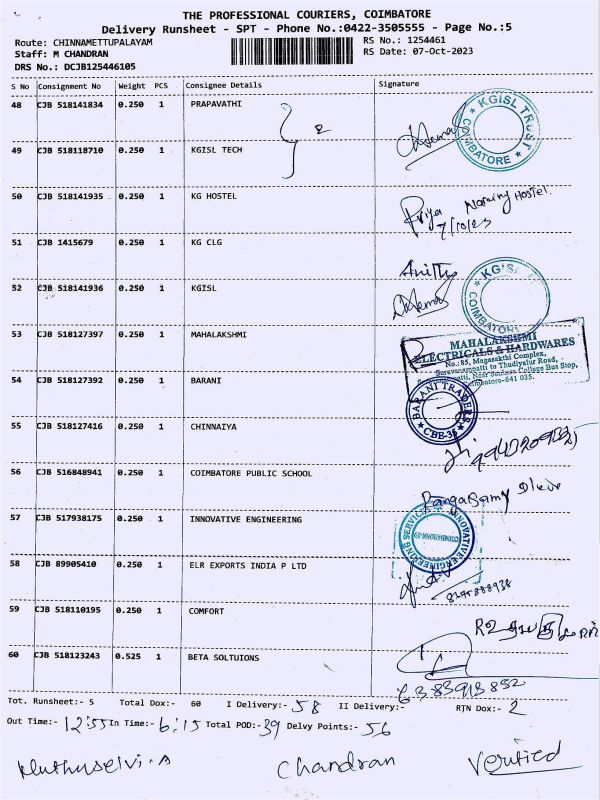 THE PROFESSIONAL COURIERS, COIMBATORE
Delivery Runsheet - SPT - Phone No.:0422-3505555 - Page No.:5
Route: CHINNAMETTUPALAYAM
RS No.: 1254461
Staff: M CHANDRAN
RS Date: 07-Oct-2023
DRS No.: DCJB125446105
S No Consignment No Weight PCS Consignee Details Signature
48 CJB 518141834 0.250 1 PRAPAVATHI
2
KGISL TRUST
COIMBATORE
49 CJB 518118710 0.250 1 KGISL TECH
50 CJB 518141935 0.250 1 KG HOSTEL
Priya
Hostel
7/10/23
51 CJB 1415679 0.250 1 KG CLG
52 CJB 518141936 0.250 1 KGISL
KGISL
COIMBATORE
53 CJB 518127397 0.250 1 MAHALAKSHMI
MAHALAKSHMI
ELECTRICALS & HARDWARES
No.:85, Magasakthi Complex,
Saravanampatti to Thudiyalur Road,
College Bus Stop,
Coimbatore-641 035.
54 CJB 518127392 0.250 1 BARANI
BARANI TRADERS
CBE-35
55 CJB 518127416 0.250 1 CHINNAIYA
56 CJB 516848941 0.250 1 COIMBATORE PUBLIC SCHOOL
57 CJB 517938175 0.250 1 INNOVATIVE ENGINEERING
INNOVATIVE ENGINEERING SERVICES
58 CJB 89905410 0.250 1 ELR EXPORTS INDIA P LTD
59 CJB 518110195 0.250 1 COMFORT
60 CJB 518123243 0.525 1 BETA SOLTUIONS
6383913832
Tot. Runsheet:- 5 Total Dox:- 60 I Delivery:- 58 II Delivery:- RTN Dox:- 2
Out Time:- 12:55 In Time:- 6:15 Total POD:- 39 Delvy Points:- 56
Muthuselvi.A Chandran Verified